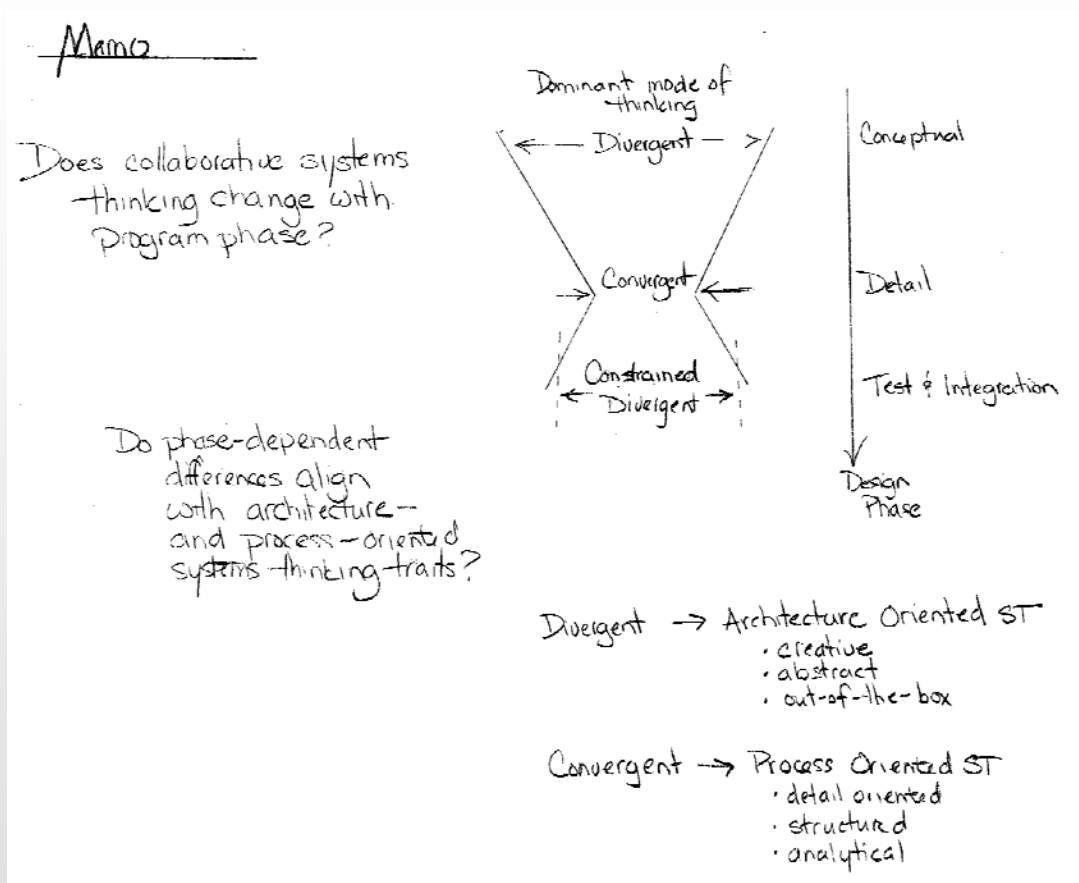 Memo
Does collaborative systems
thinking change with
program phase?
Do phase-dependent
differences align
with architecture-
and process-oriented
systems thinking traits?
Dominant mode of
thinking
Divergent
Convergent
Constrained
Divergent
Conceptual
Detail
Test & Integration
Design
Phase
Divergent → Architecture Oriented ST
· creative
· abstract
· out-of-the-box
Convergent → Process Oriented ST
· detail oriented
· structured
· analytical